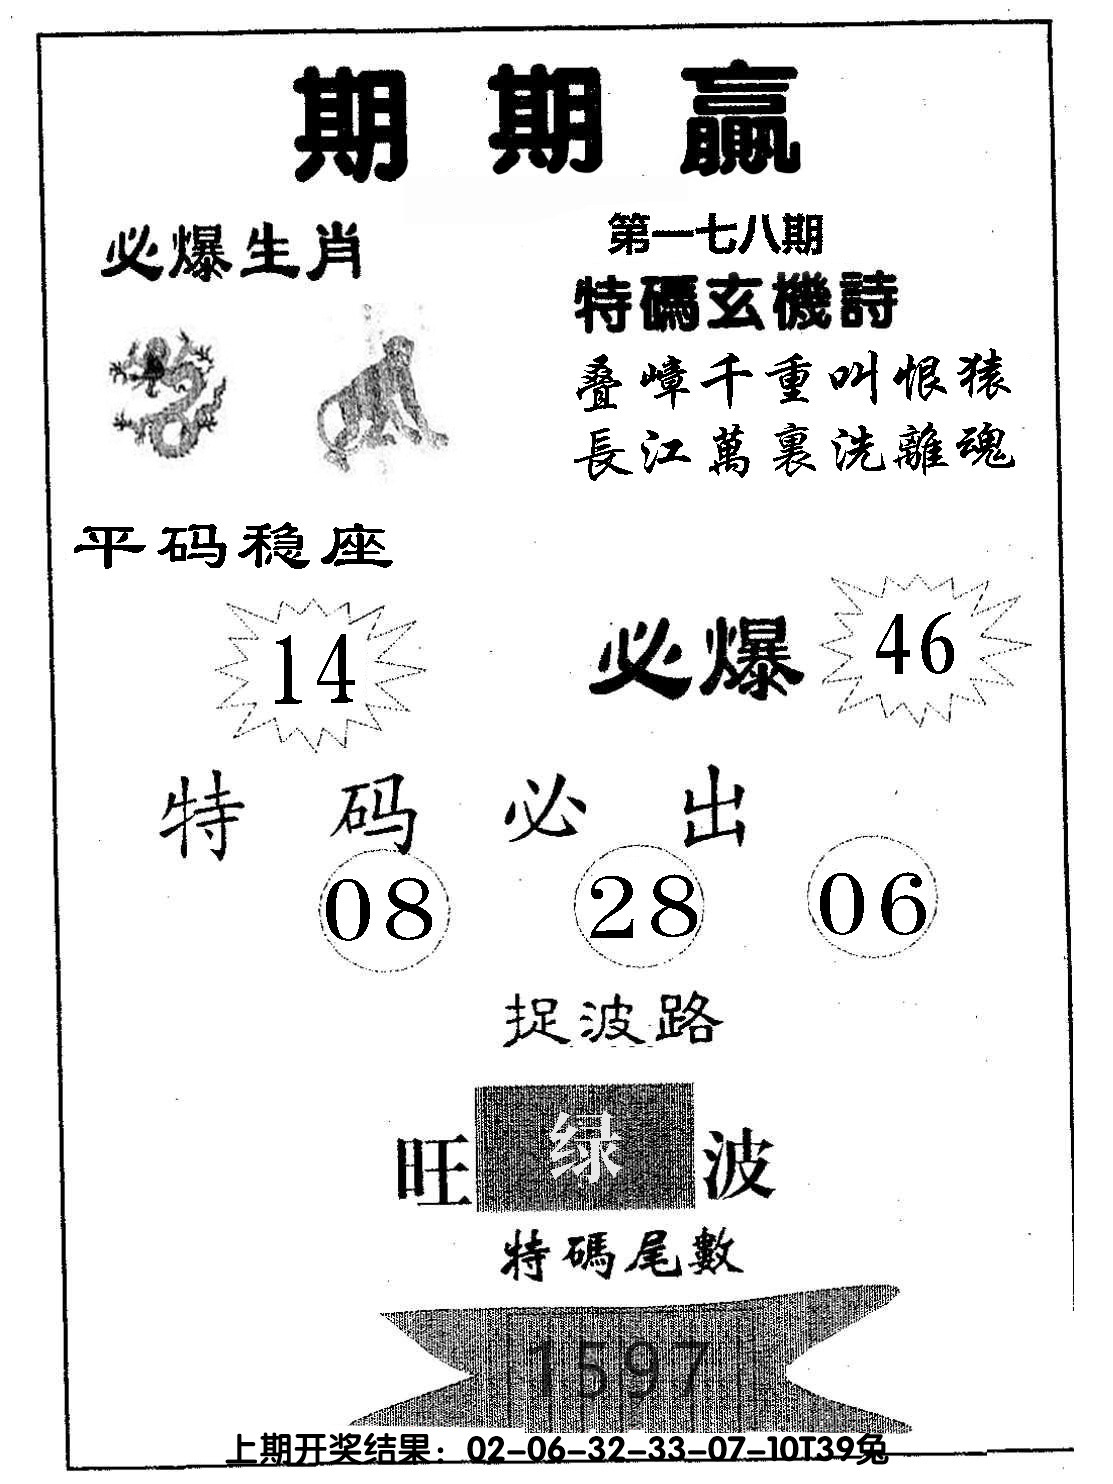 期期赢
必爆生肖
第一七八期
特碼玄機詩
叠嶂千重叫恨猿
長江萬裏洗離魂
平码稳座
14
必爆
46
特码必出
08 28 06
捉波路
旺绿波
特碼尾數
1597
上期开奖结果：02-06-32-33-07-10T39兔